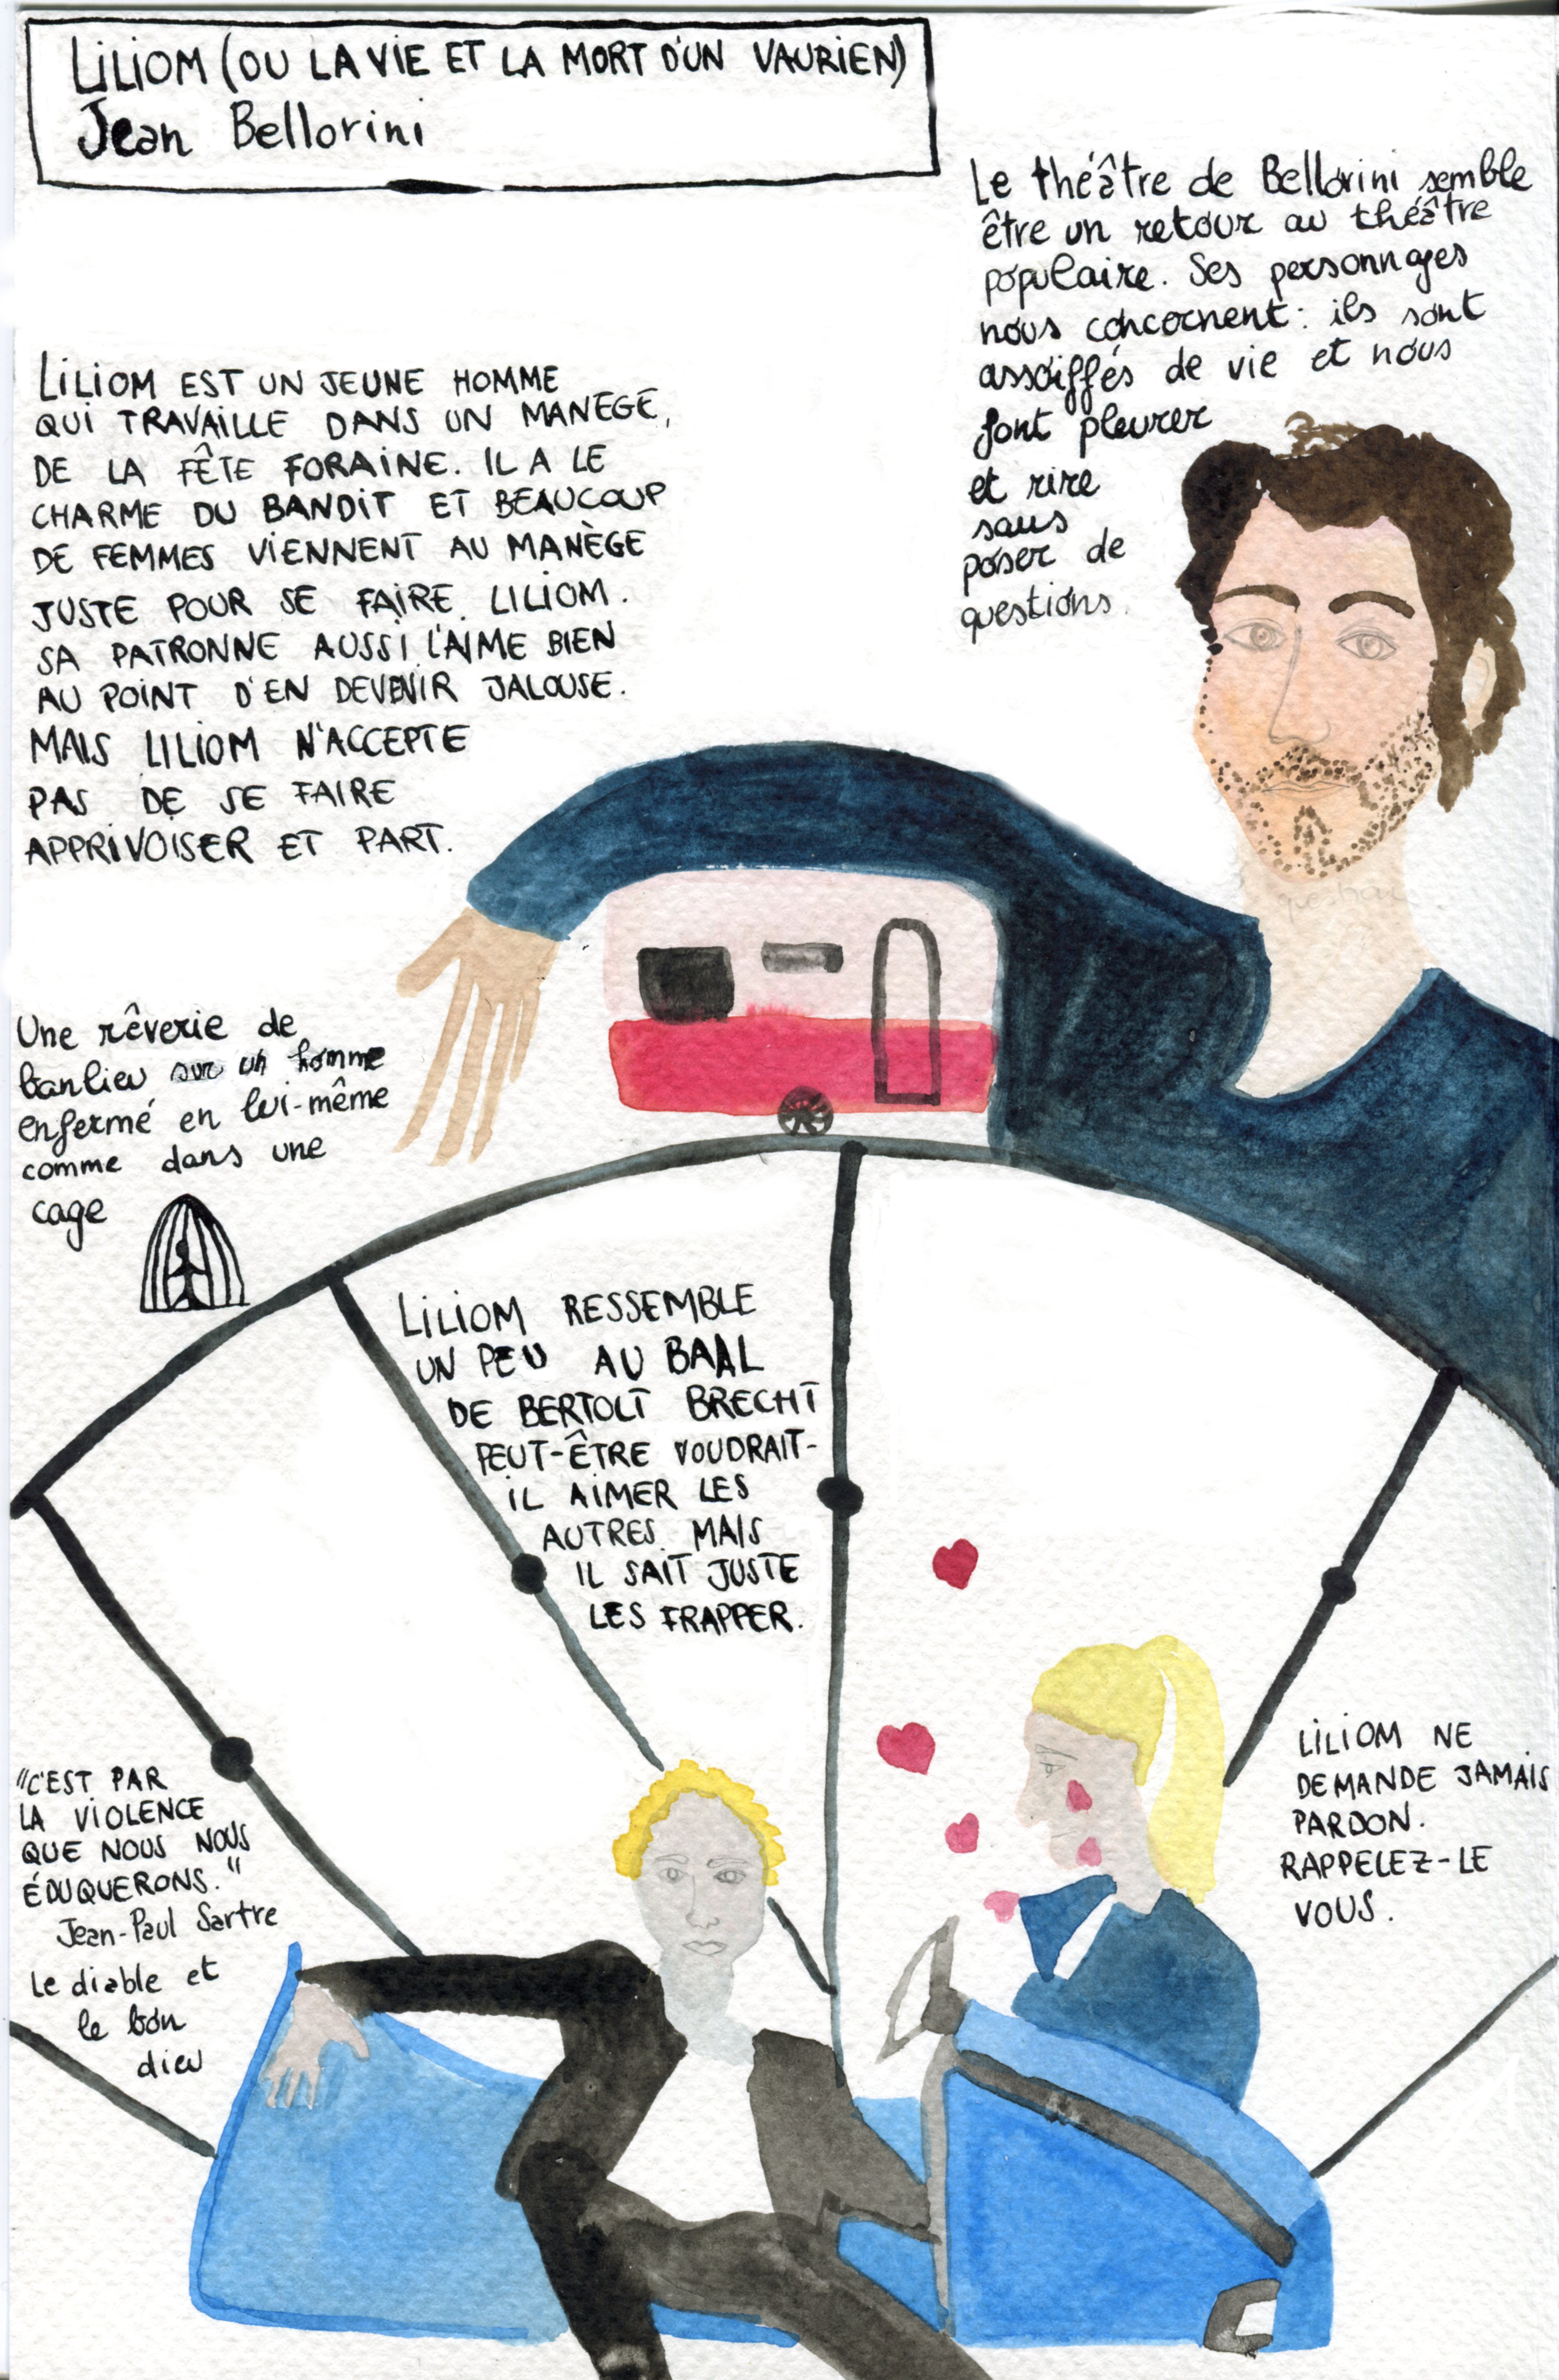 LILIOM (OU LA VIE ET LA MORT D'UN VAURIEN)
Jean Bellorini
Le théâtre de Bellorini semble
être un retour au théâtre
populaire. Ses personnages
nous concernent: ils sont
assoiffés de vie et nous
font pleurer
et rire
sans
poser de
questions.
LILIOM EST UN JEUNE HOMME
QUI TRAVAILLE DANS UN MANÈGE,
DE LA FÊTE FORAINE. IL A LE
CHARME DU BANDIT ET BEAUCOUP
DE FEMMES VIENNENT AU MANÈGE
JUSTE POUR SE FAIRE LILIOM.
SA PATRONNE AUSSI L'AIME BIEN
AU POINT D'EN DEVENIR JALOUSE.
MAIS LILIOM N'ACCEPTE
PAS DE SE FAIRE
APPRIVOISER ET PART.
Une rêverie de
banlieu sur un homme
enfermé en lui-même
comme dans une
cage
LILIOM RESSEMBLE
UN PEU AU BAAL
DE BERTOLT BRECHT
PEUT-ÊTRE VOUDRAIT-
IL AIMER LES
AUTRES. MAIS
IL SAIT JUSTE
LES FRAPPER.
"C'EST PAR
LA VIOLENCE
QUE NOUS NOUS
ÉDUQUERONS."
Jean-Paul Sartre
Le diable et
le bon
dieu
LILIOM NE
DEMANDE JAMAIS
PARDON.
RAPPELEZ-LE
VOUS.